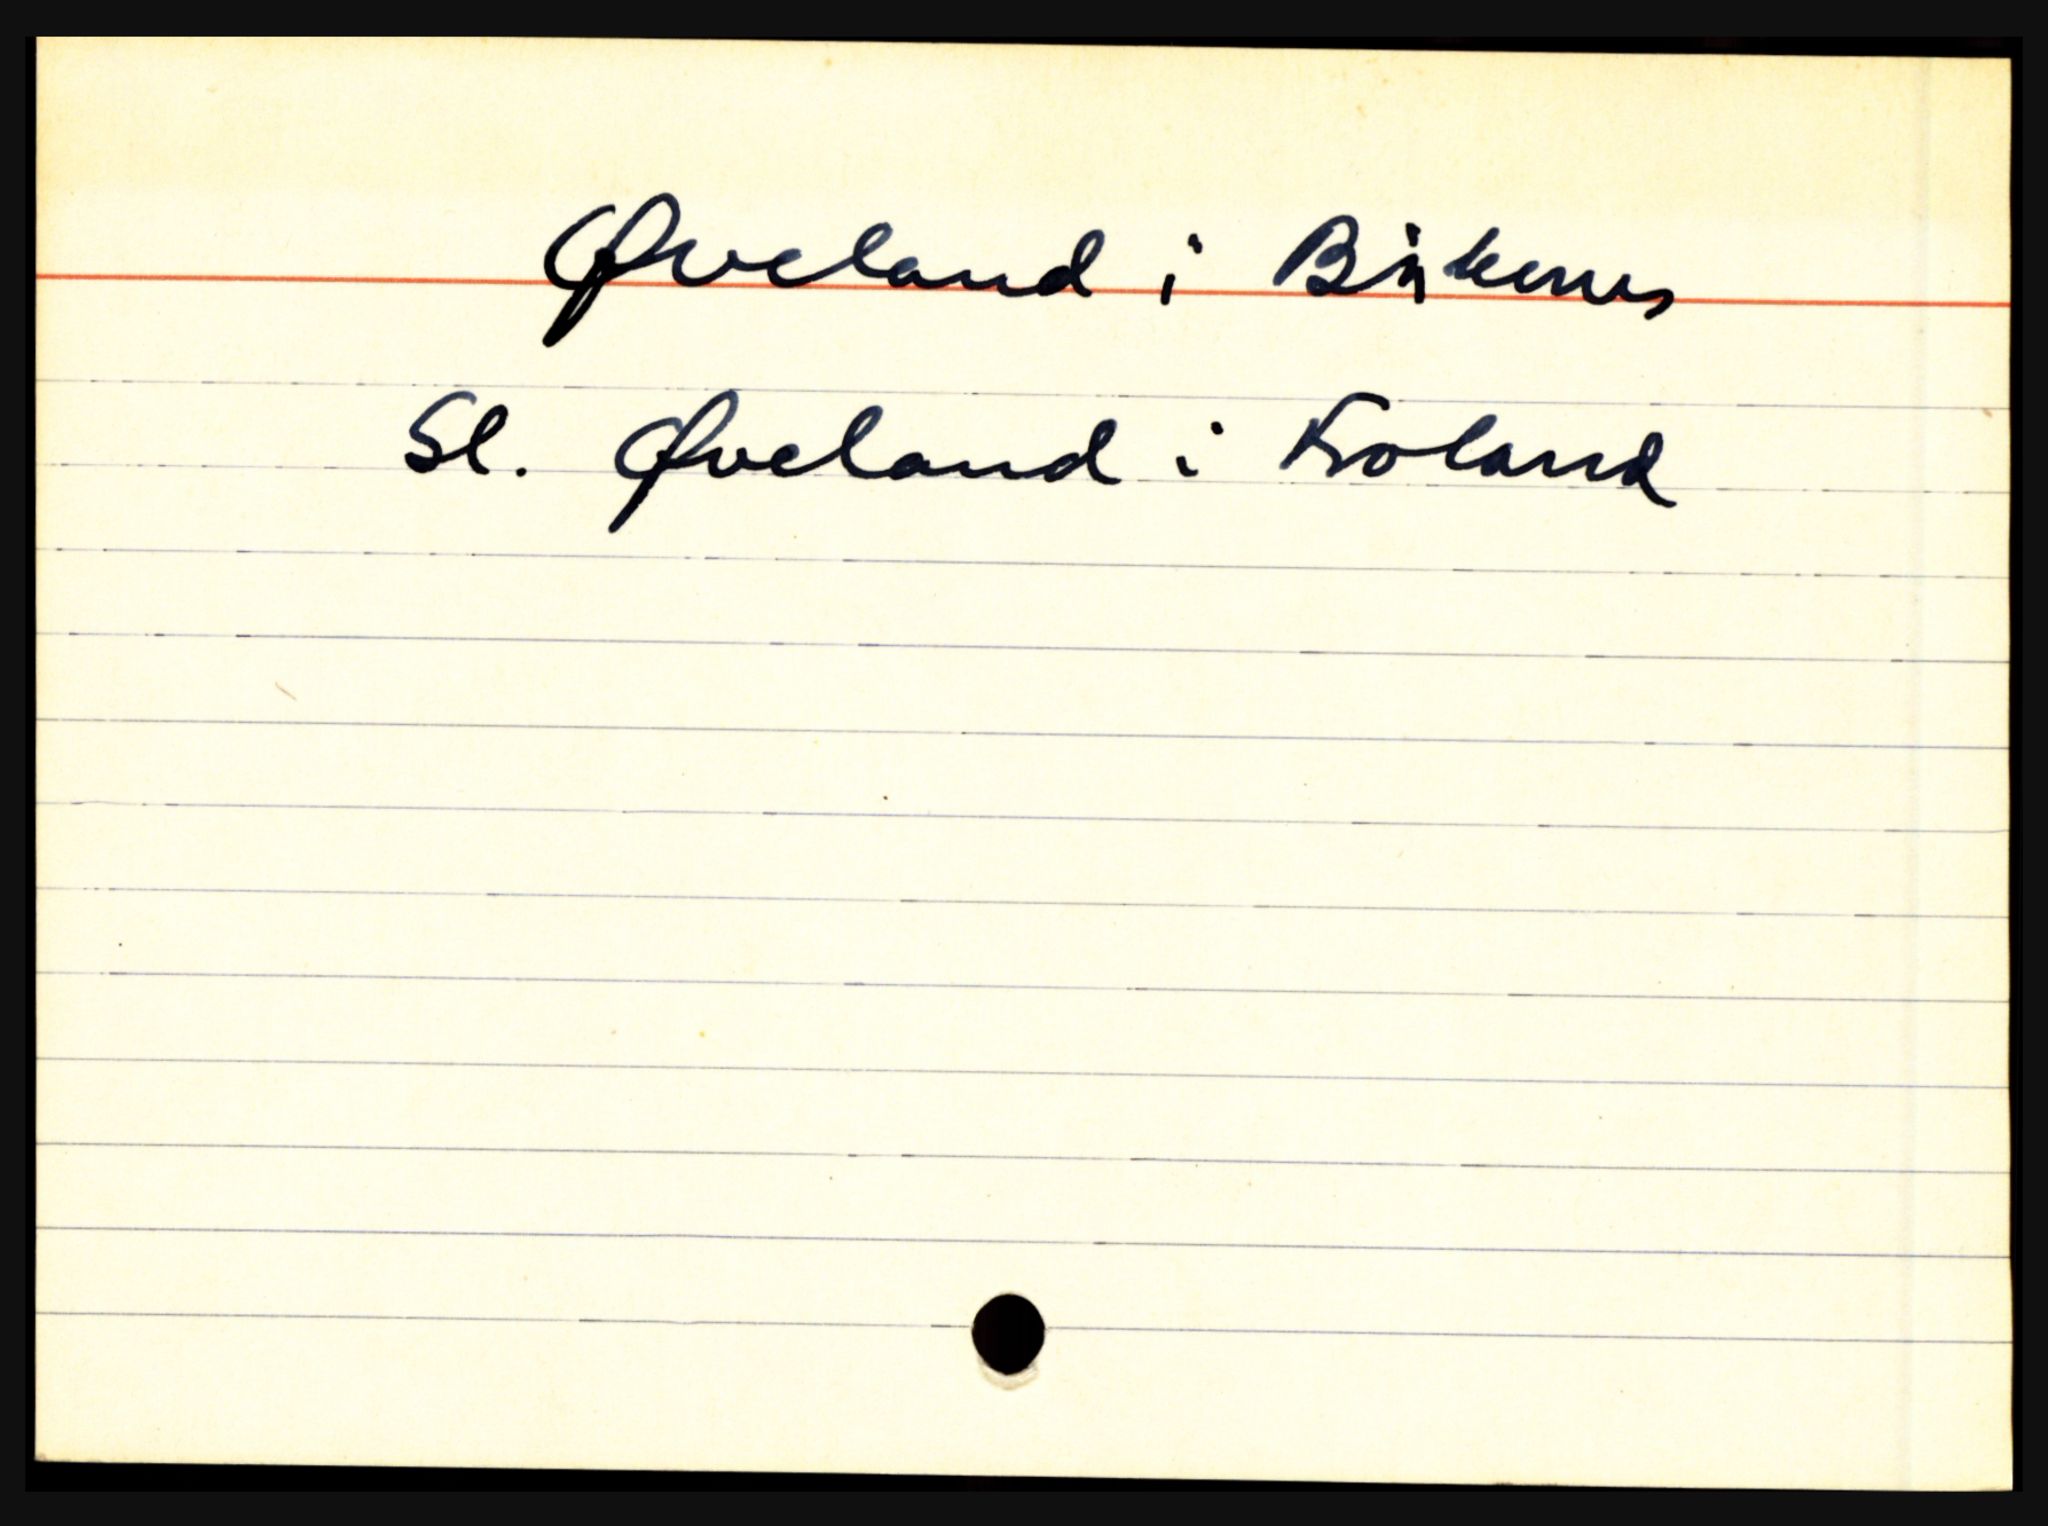 Øveland i Birkenes
Sl. Øveland i Froland